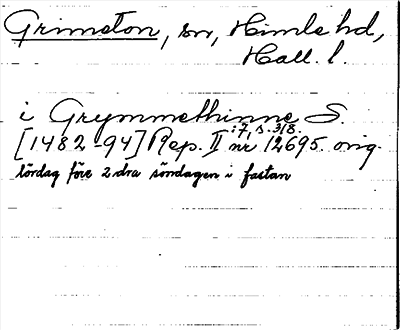 Grimeton, sn, Himle hd,
Hall. l.
i Grymmethinne S.
:7, s. 318.
[1482-94] Rep. II nr 12695. orig.
lördag före 2 dra söndagen i fastan